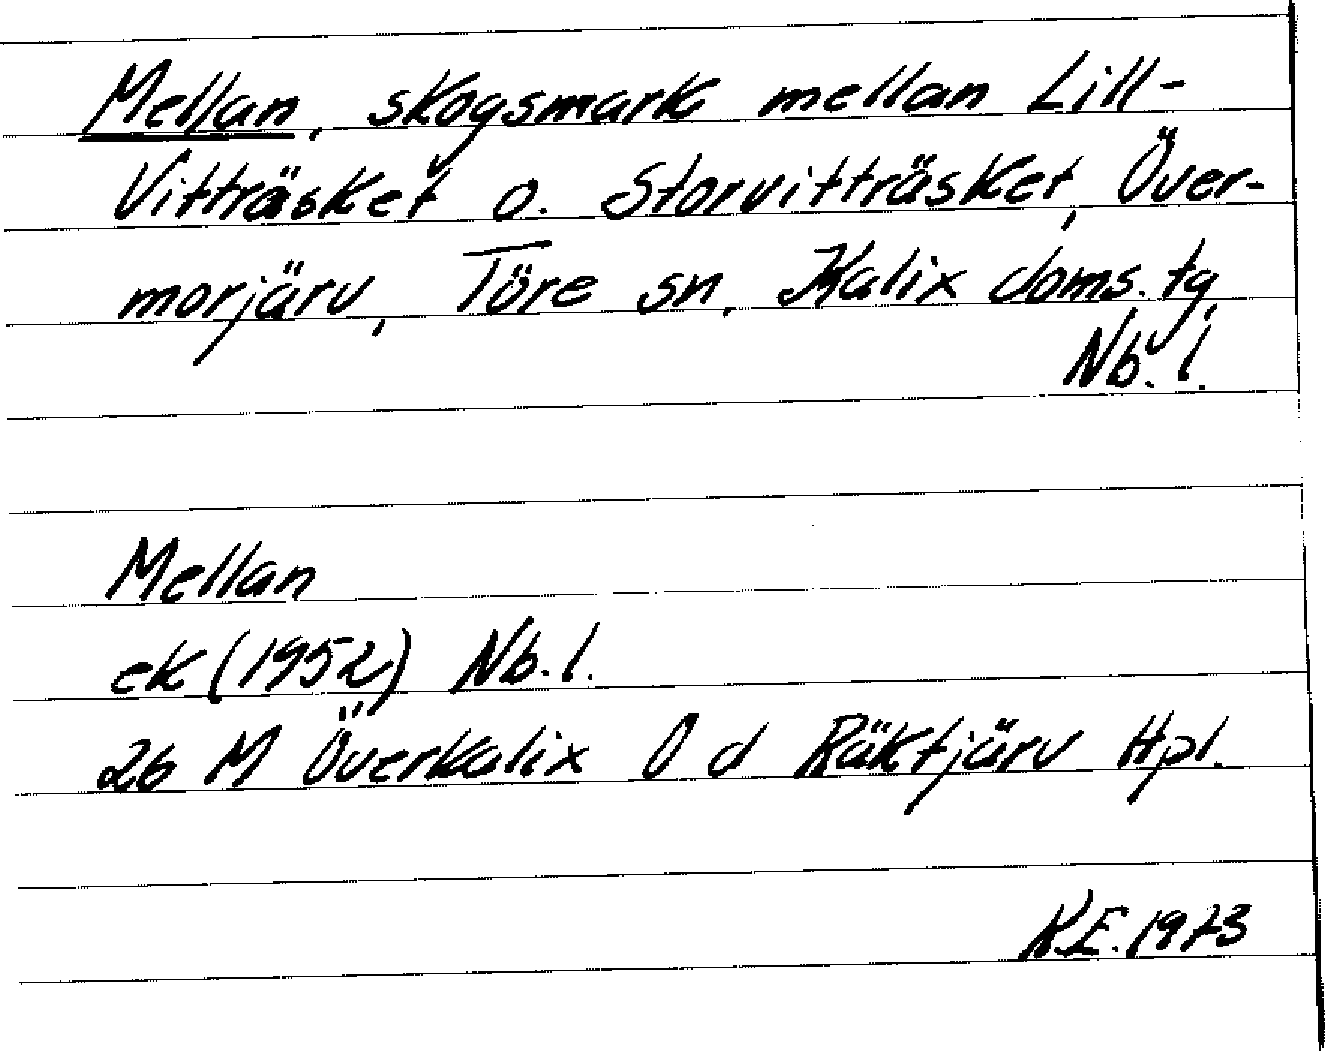 Mellan, skogsmark mellan Lill-
Vitträsket o. Storvitträsket, Över-
morjärv, Töre sn, Kalix doms. tg,
Nb. l.
Mellan
ek (1952) Nb. l.
26 M Överkalix O d Räktjärv Hpl.
K.E. 1973